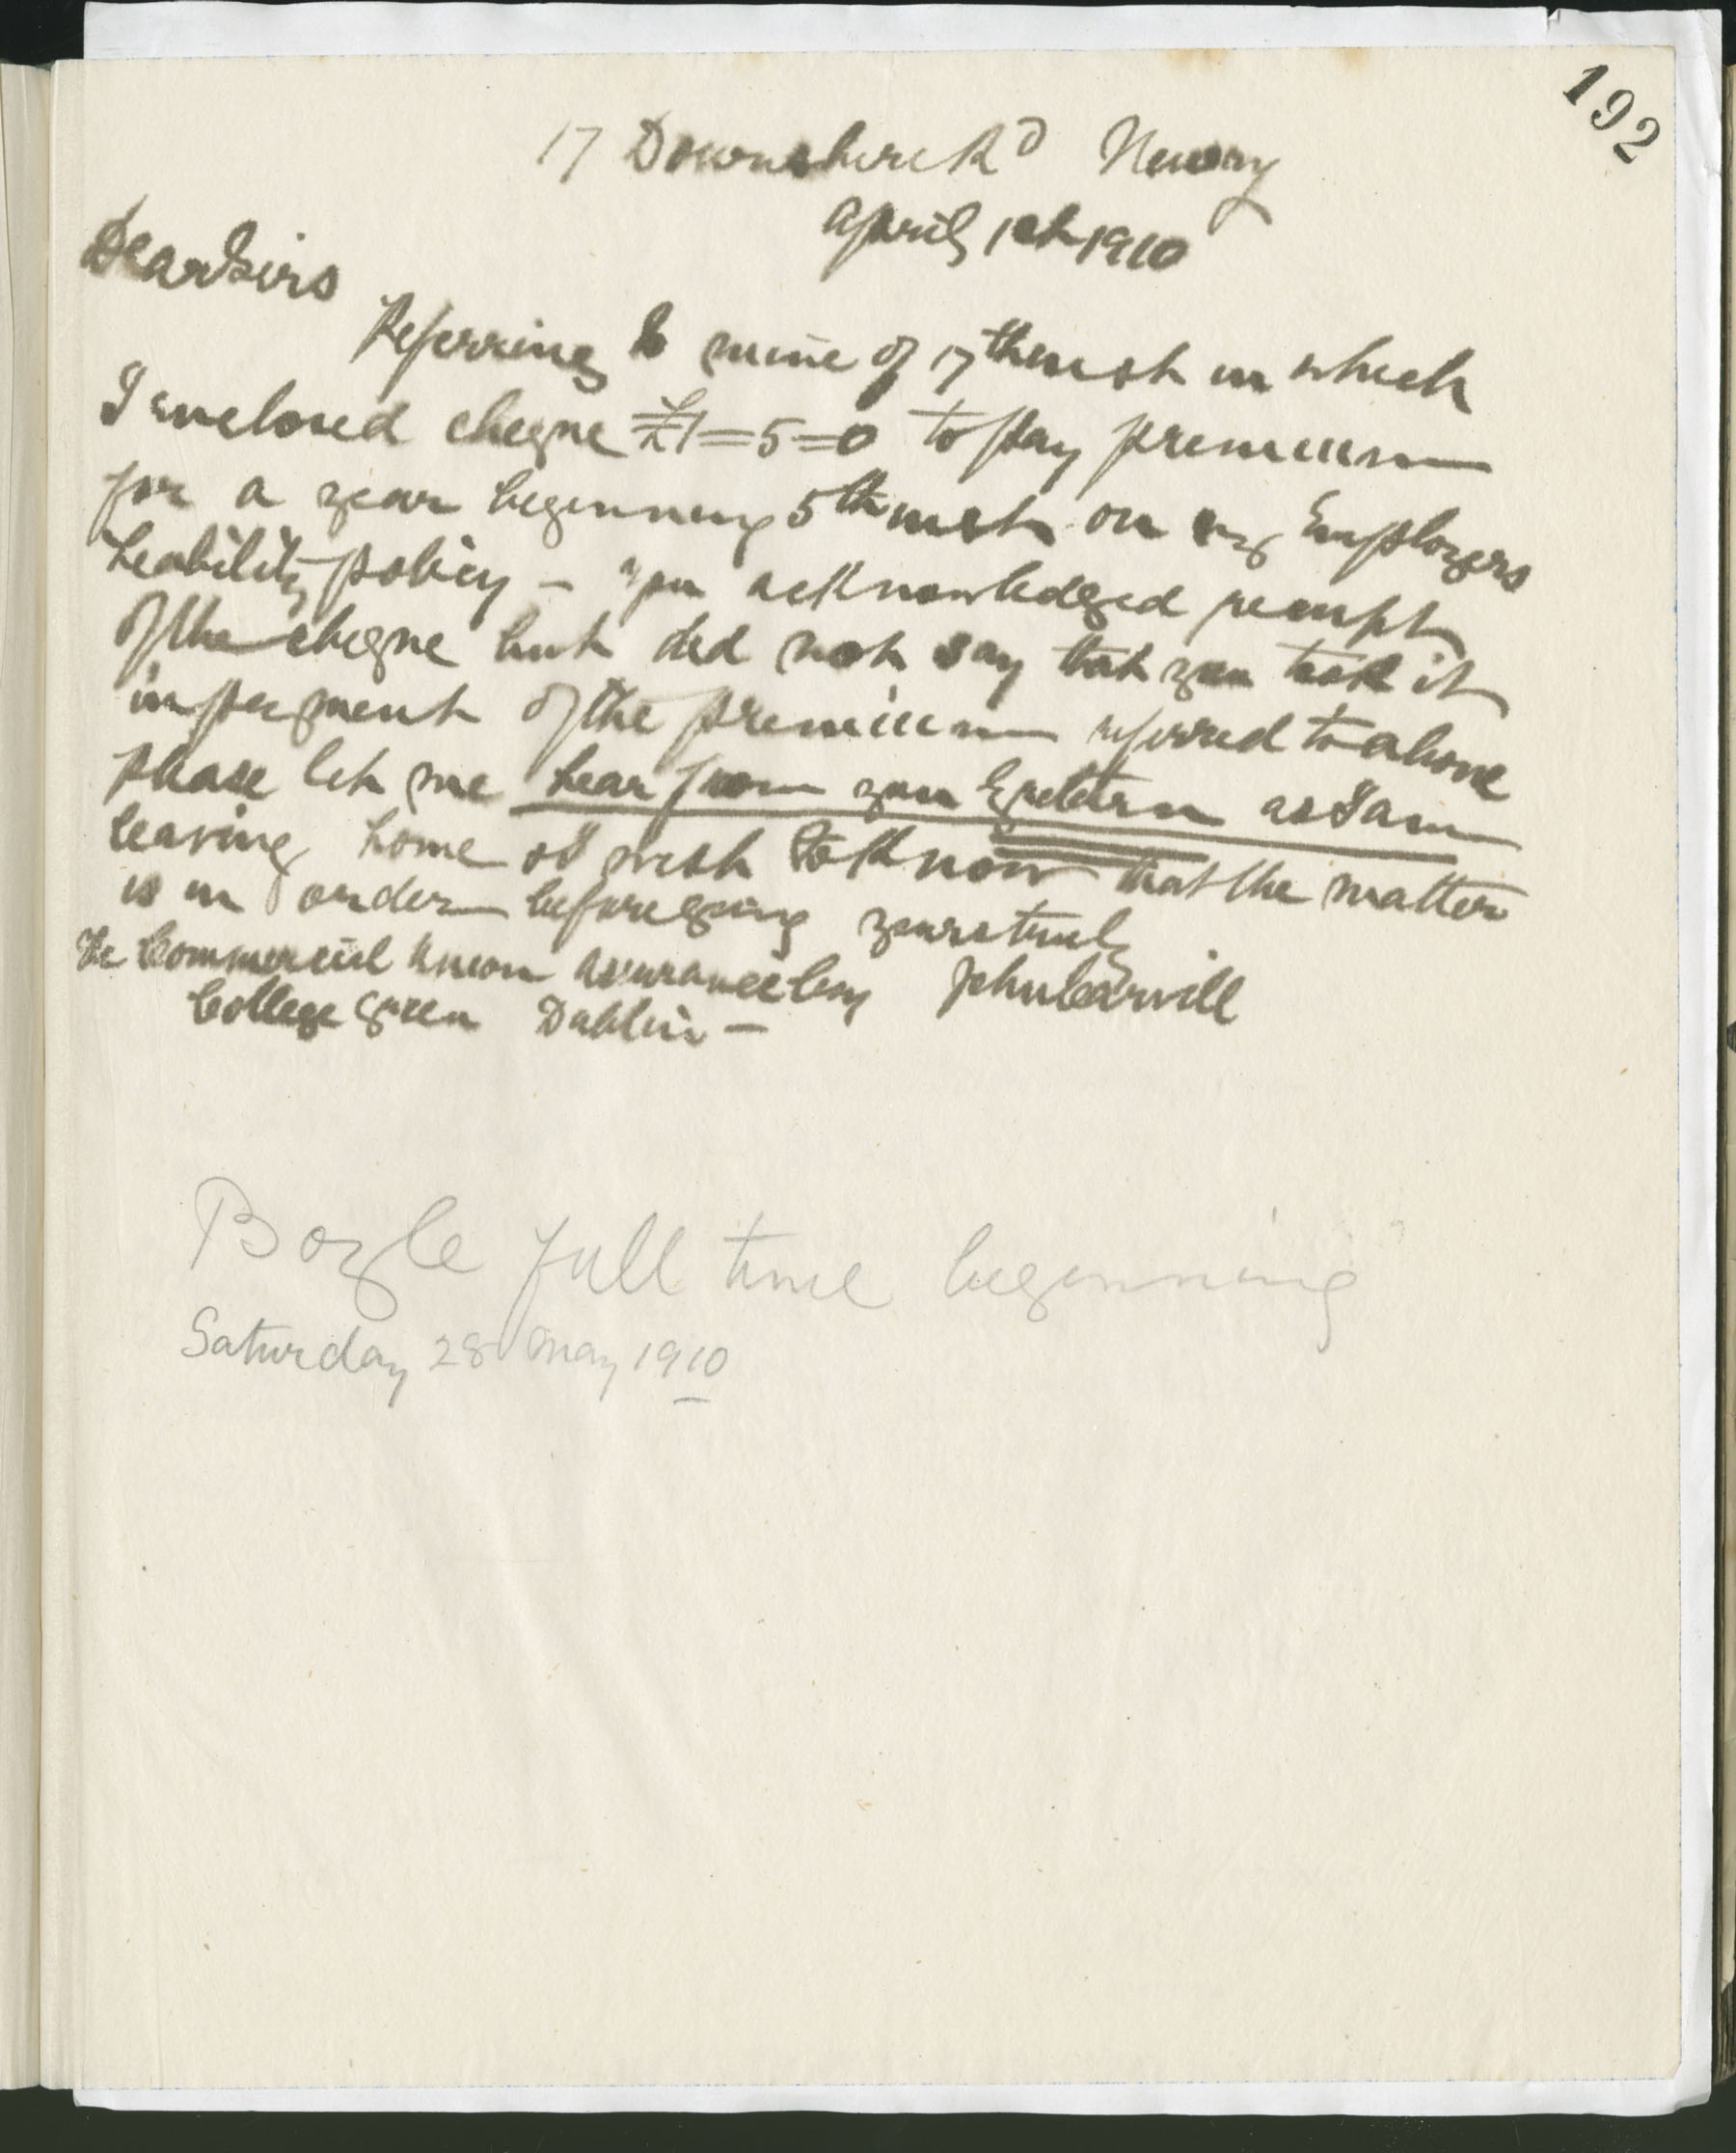 192
17 Downshire Rd Newry
April 1910
Dear Sirs
Referring to mine of 17th inst in which
I enclosed cheque £1=5=0 to pay premium
for a year beginning 5th inst on my Employers
Liability policy - you acknowledged receipt
of the cheque but did not say that you took it
in payment of the premium referred to above
please let me hear from you by return as I am
leaving home & I wish to know that the matter
is in order before going yours truly
The Commercial Union Assurance Coy John Carvill
College Green Dublin -
Boyle full time beginning
Saturday 28 May 1910